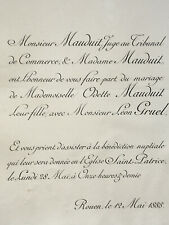 Monsieur Mauduit, Juge au Tribunal
de Commerce, & Madame Mauduit,
ont l'honneur de vous faire part du mariage
de Mademoiselle Odette Mauduit
leur fille, avec Monsieur Léon Gruel.
Et vous prient d'assister à la bénédiction nuptiale
qui leur sera donnée en l'Eglise Saint-Patrice
le Lundi 28 Mai, à Onze heures & demie
Rouen, le 12 Mai 1888.